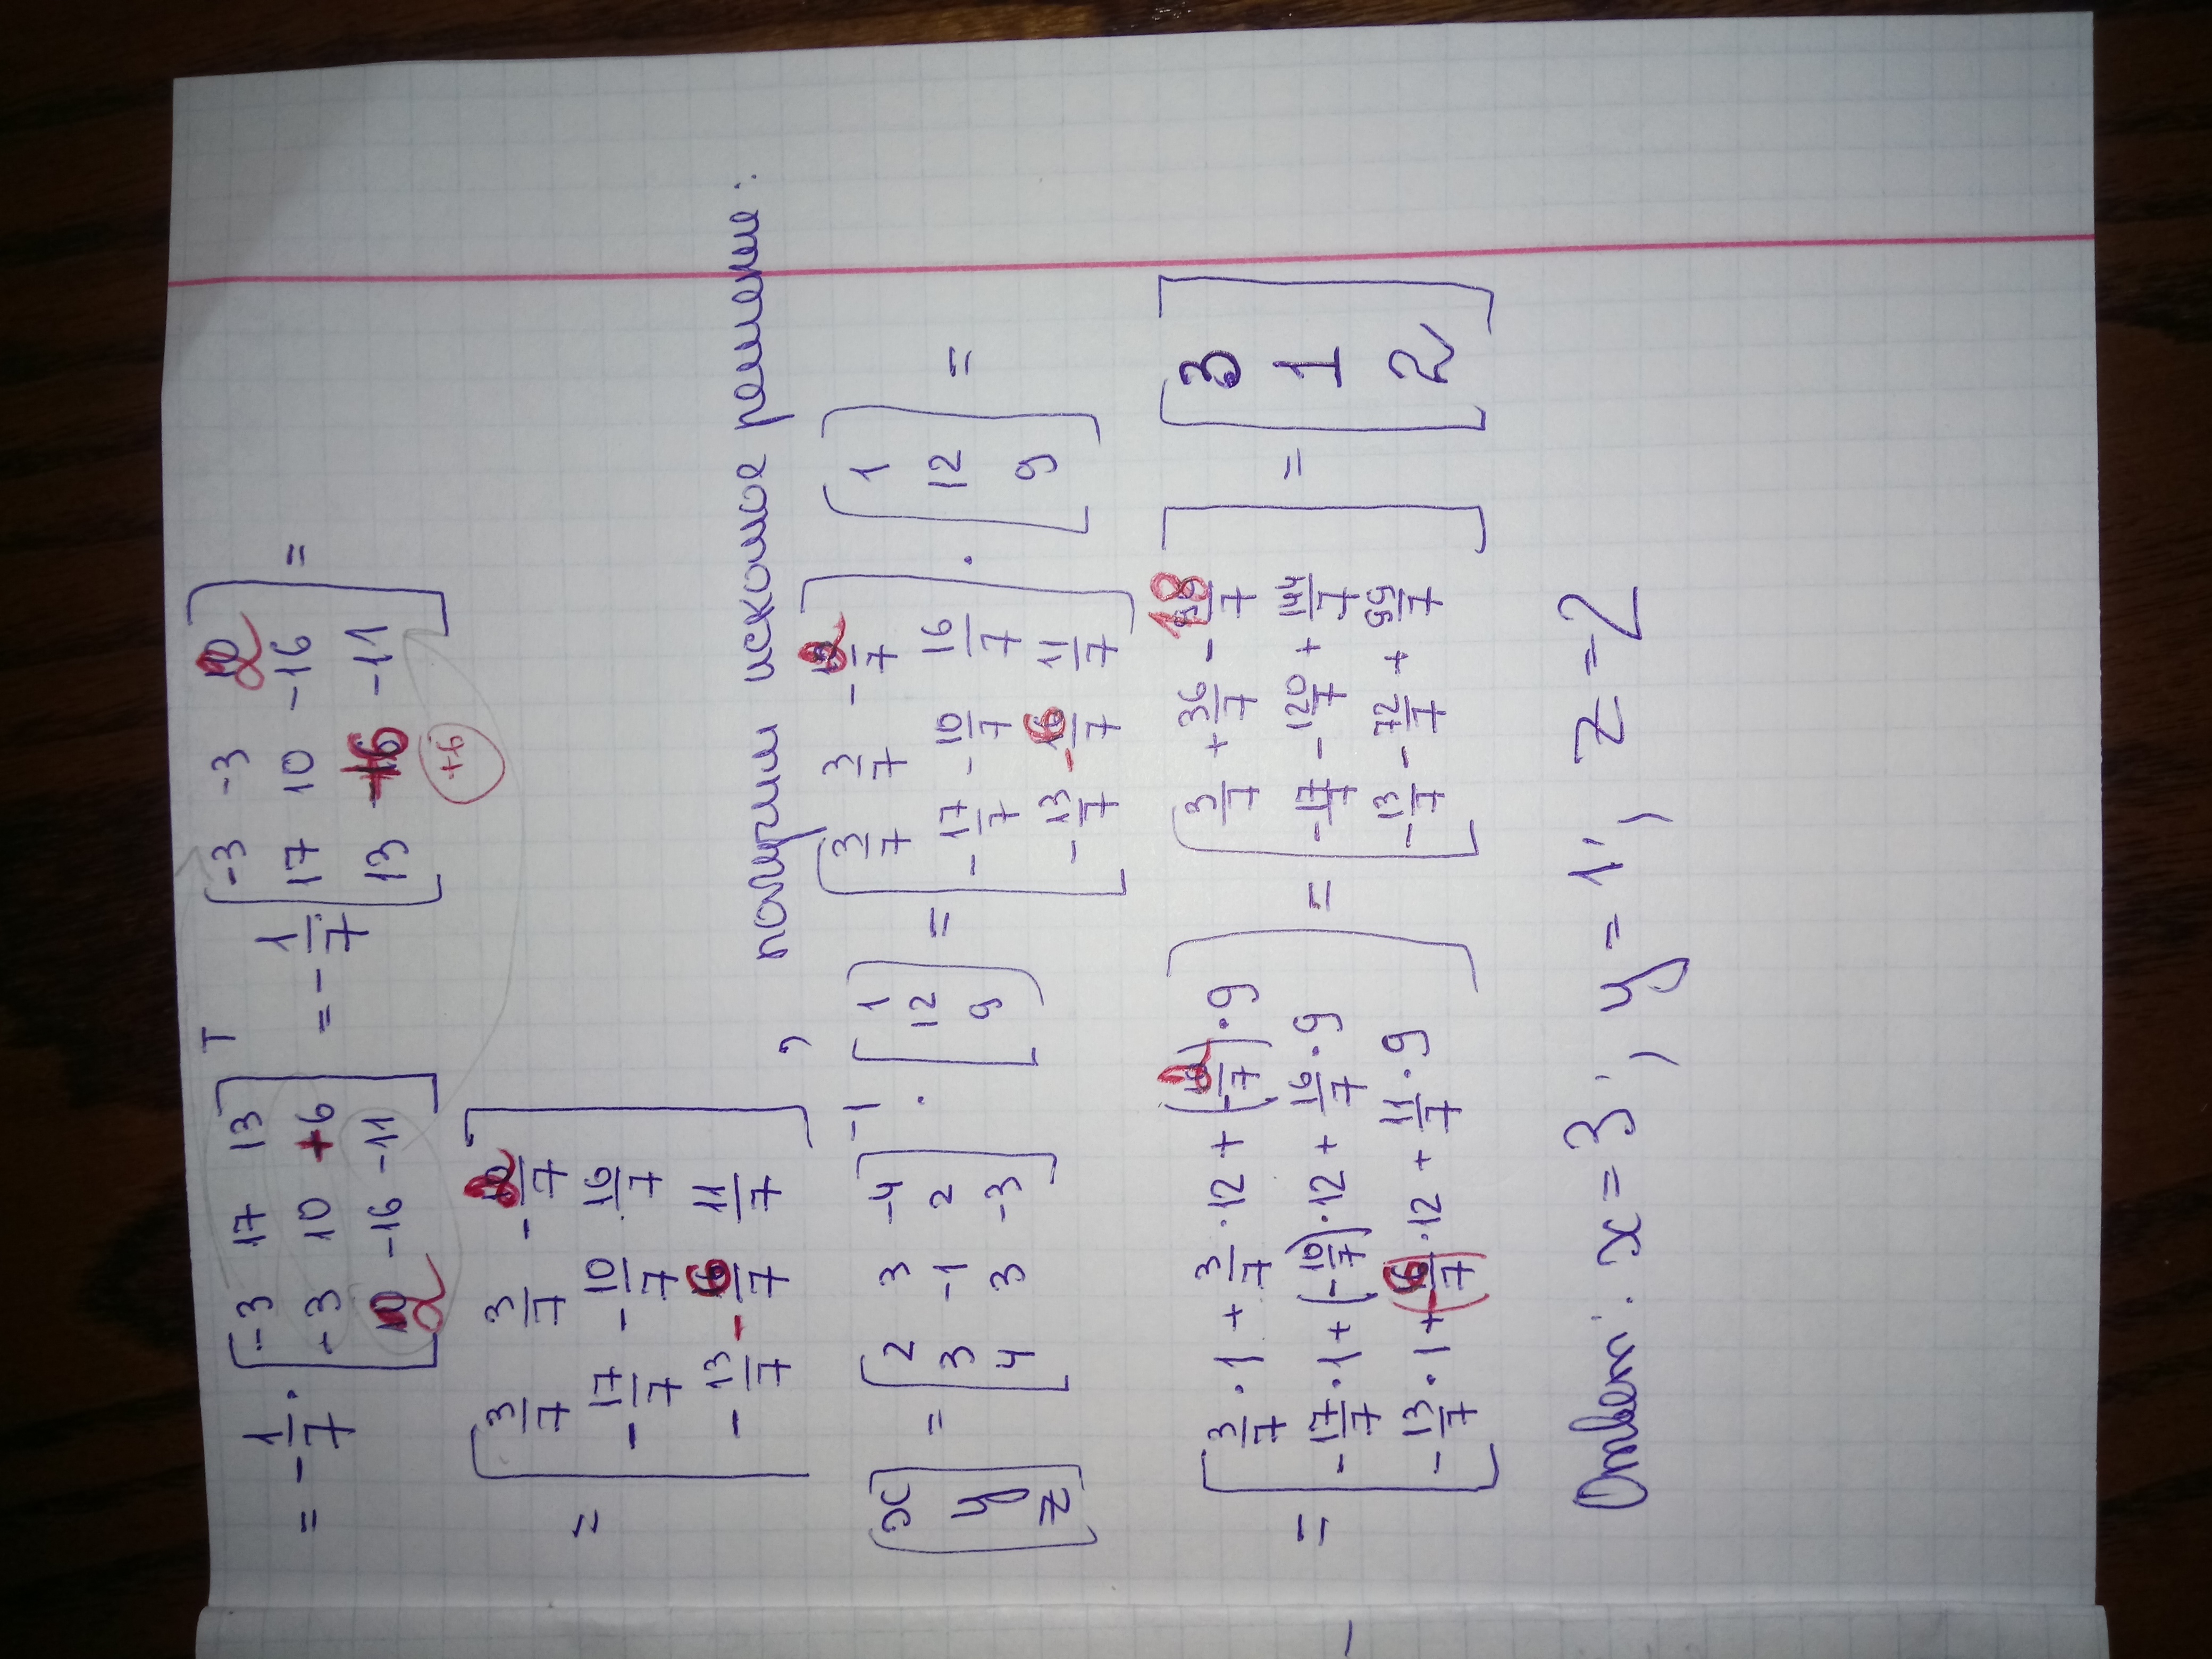 = -1/7 · [-3 17 13; -3 10 +6; 2 -16 -11]ᵀ = -1/7 [-3 -3 2; 17 10 -16; 13 +6 -11] =
+6
= [3/7 3/7 -2/7; -17/7 -10/7 16/7; -13/7 -6/7 11/7], получим искомое решение:
[x; y; z] = [2 3 -4; 3 -1 2; 4 3 -3]⁻¹ · [1; 12; 9] = [3/7 3/7 -2/7; -17/7 -10/7 16/7; -13/7 -6/7 11/7] · [1; 12; 9] =
= [3/7·1 + 3/7·12 + (-2/7)·9; -17/7·1 + (-10/7)·12 + 16/7·9; -13/7·1 + (-6/7)·12 + 11/7·9] = [3/7 + 36/7 - 18/7; -17/7 - 120/7 + 144/7; -13/7 - 72/7 + 99/7] = [3; 1; 2]
Ответ: x = 3; y = 1; z = 2